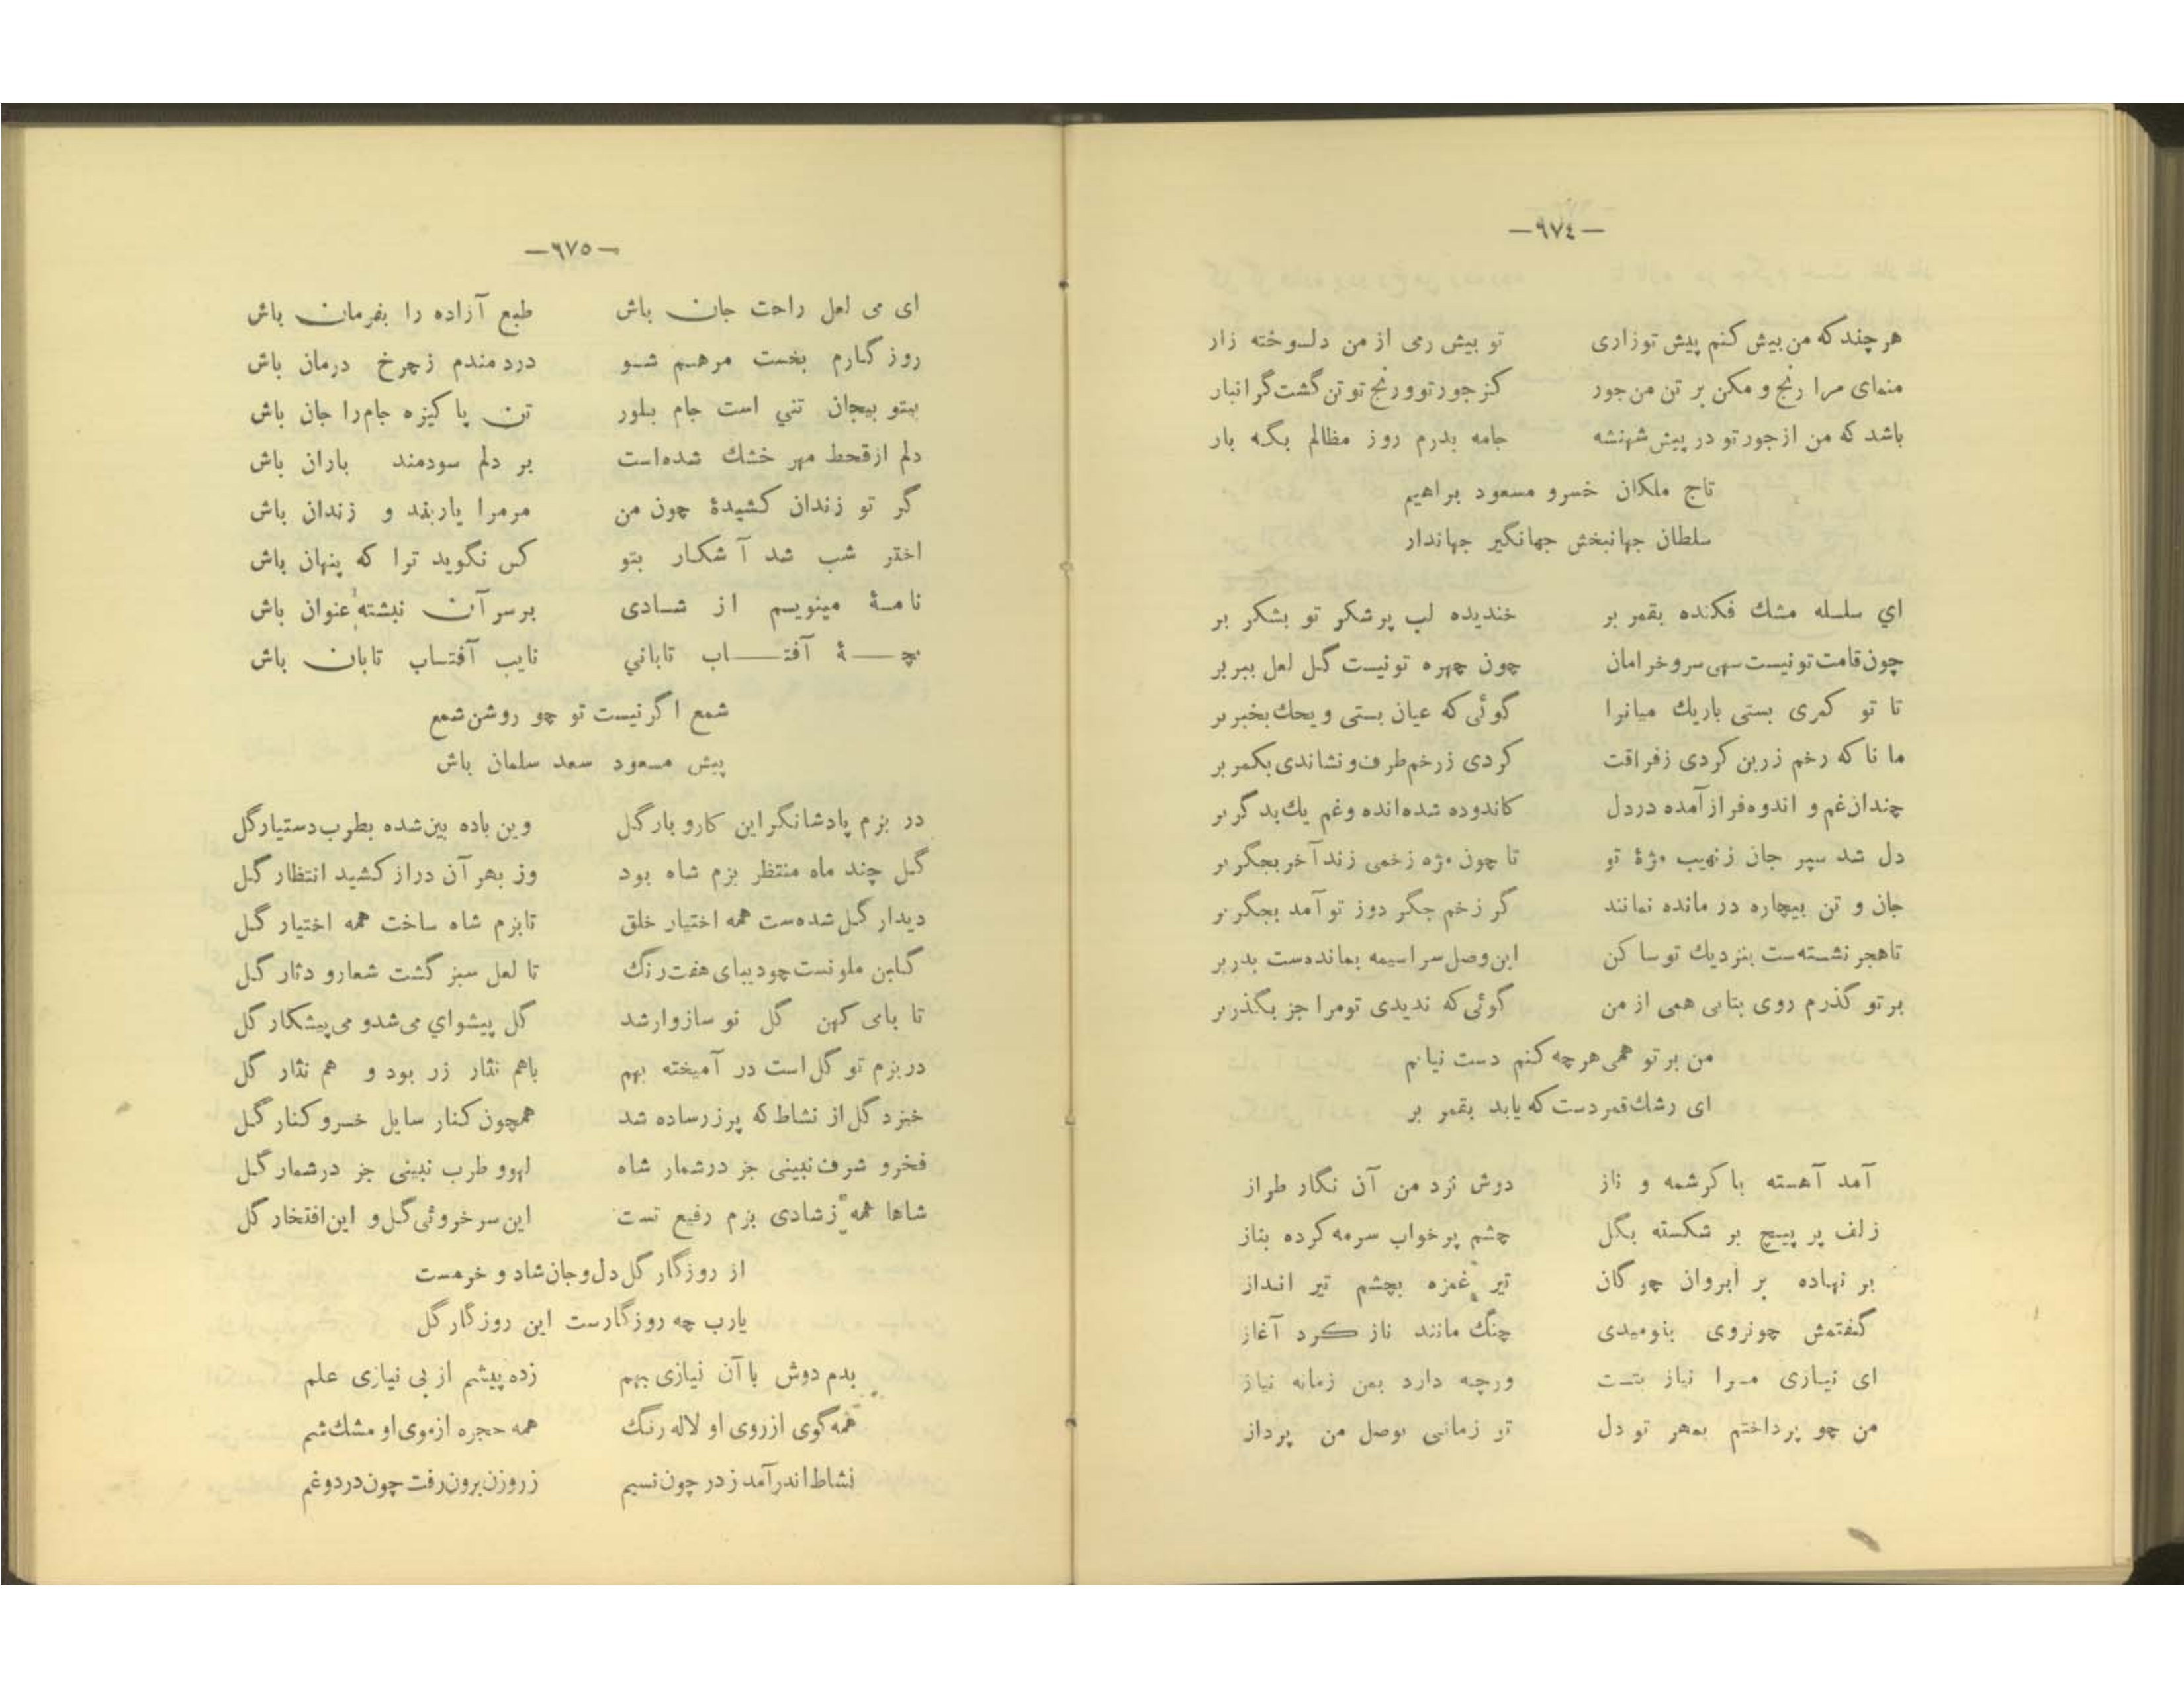 —٦٧٤—
هر چند که من بیش کنم پیش تو زاری تو بیش رمی از من دلسوخته زار
منمای مرا رنج و مکن بر تن من جور کز جور تو و رنج تو تن گشت گرانبار
باشد که من از جور تو در پیش شهنشه جامه بدرم روز مظالم بگه بار
تاج ملکان خسرو مسعود براهیم
سلطان جهانبخش جهانگیر جهاندار
اي سلسله مشك فکنده بقمر بر خندیده لب پر شکر تو بشکر بر
چون قامت تو نیست سهی سرو خرامان چون چهره تو نیست گل لعل ببر بر
تا تو کمری بستی باریك میانرا گوئی که عیان بستی ویحك بخبر بر
ما نا که رخم زرین کردی زفراقت کردی ز رخم طرف و نشاندی بکمر بر
چندان غم و اندوه فراز آمده در دل کاندوده شده انده و غم یك بدگر بر
دل شد سپر جان ز نهیب مژۀ تو تا چون مژه زخمی زند آخر بجگر بر
جان و تن بیچاره در مانده نمانند گر زخم جگر دوز تو آمد بجگر بر
تا هجر نشسته ست بنزدیك تو ساکن این وصل سراسیمه بمانده ست بدر بر
بر تو گذرم روی بتابی همی از من گوئی که ندیدی تو مرا جز بگذر بر
من بر تو همی هر چه کنم دست نیابم
ای رشك قمر دست که یابد بقمر بر
آمد آهسته با کرشمه و ناز دوش نزد من آن نگار طراز
زلف پر پیچ بر شکسته بگل چشم پر خواب سرمه کرده بناز
بر نهاده بر ابروان چو کمان تیر غمزه بچشم تیر انداز
گفتمش چونروی بنومیدی چنگ مانند ناز کرد آغاز
ای نیازی مرا نیاز بتست ورچه دارد بمن زمانه نیاز
من چو پرداختم بمهر تو دل تو زمانی بوصل من پرداز
—٦٧٥—
ای می لعل راحت جان باش طبع آزاده را بفرمان باش
روز گارم بخست مرهم شو دردمندم زچرخ درمان باش
بیتو بیجان تني است جام بلور تن پا کیزه جام را جان باش
دلم از قحط مهر خشك شده است بر دلم سودمند باران باش
گر تو زندان کشیدۀ چون من مر مرا یار بند و زندان باش
اختر شب شد آ شکار بتو کس نگوید ترا که پنهان باش
نامۀ مینویسم از شادی بر سر آن نبشته عنوان باش
بچۀ آفتاب تاباني نایب آفتاب تابان باش
شمع اگر نیست تو چو روشن شمع
پیش مسعود سعد سلمان باش
در بزم پادشا نگر این کارو بار گل وین باده بین شده بطرب دستیار گل
گل چند ماه منتظر بزم شاه بود وز بهر آن دراز کشید انتظار گل
دیدار گل شده ست همه اختیار خلق تا بزم شاه ساخت همه اختیار گل
گلبن ملونست چو دیبای هفت رنگ تا لعل سبز گشت شعارو دثار گل
تا بامی کهن گل نو سازوار شد گل پیشواي می شدو می پیشکار گل
در بزم تو گل است در آمیخته بهم باهم نثار زر بود و هم نثار گل
خیزد گل از نشاط که پر زر ساده شد همچون کنار سایل خسرو کنار گل
فخرو شرف نبینی جز در شمار شاه لهوو طرب نبینی جز در شمار گل
شاها همه زشادی بزم رفیع تست این سر خروئی گل و این افتخار گل
از روزگار گل دل و جان شاد و خرمست
یارب چه روزگارست این روزگار گل
بدم دوش با آن نیازی بهم زده پیشم از بی نیازی علم
همه گوی از روی او لاله رنگ همه حجره از موی او مشك شم
نشاط اندر آمد ز در چون نسیم ز روزن برون رفت چون درد و غم